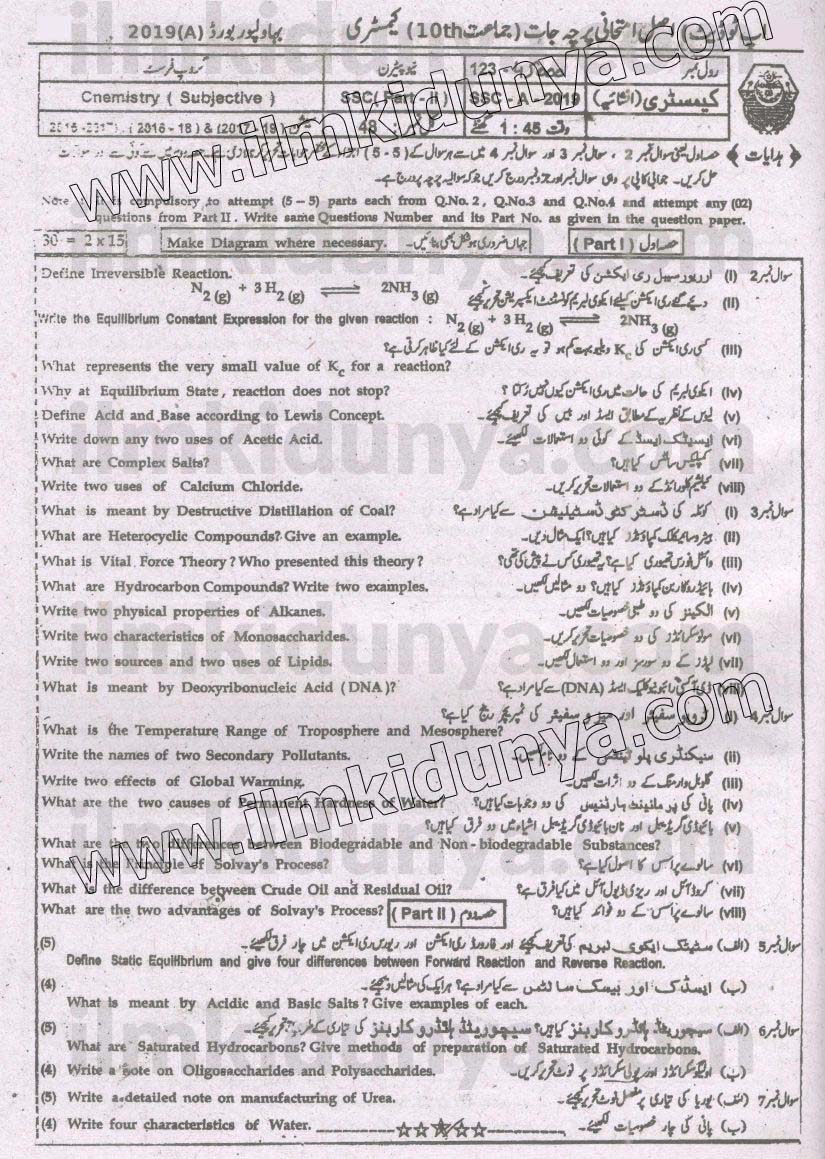 اصل امتحانی پرچہ جات (جماعت 10th) کیمسٹری بہاولپور بورڈ 2019(A)
رول نمبر 123 گروپ فرسٹ
کیمسٹری (انشائیہ) SSC - A - 2019 SSC( Part - II ) Chemistry ( Subjective )
وقت 1 : 45 گھنٹے 48 (2016 - 18) &
Note : It is compulsory to attempt (5 – 5) parts each from Q.No. 2 , Q.No.3 and Q.No.4 and attempt any (02)
questions from Part II . Write same Questions Number and its Part No. as given in the question paper.
30 = 2 x 15 Make Diagram where necessary. جہاں ضروری ہو شکل بھی بنائیے۔ حصہ اول ( Part I )
Define Irreversible Reaction. سوال نمبر 2 (i) اررپورسیبل ری ایکشن کی تعریف کیجئے۔
N2 (g) + 3 H2 (g) ⇌ 2NH3 (g) (ii)
Write the Equilibrium Constant Expression for the given reaction : N2 (g) + 3 H2 (g) ⇌ 2NH3 (g)
(iii) کسی ری ایکشن کی Kc ویلیو بہت کم ہو تو یہ ری ایکشن کے لئے کیا ظاہر کرتی ہے؟
What represents the very small value of Kc for a reaction?
Why at Equilibrium State , reaction does not stop? (iv) ایکوی لبریم کی حالت میں ری ایکشن کیوں نہیں رکتا ؟
Define Acid and Base according to Lewis Concept. (v) لیوس کے نظریہ کے مطابق ایسڈ اور بیس کی تعریف کیجئے۔
Write down any two uses of Acetic Acid. (vi) ایسیٹک ایسڈ کے کوئی دو استعمالات لکھیئے۔
What are Complex Salts? (vii) کمپلیکس سالٹس کیا ہیں؟
Write two uses of Calcium Chloride. (viii) کیلشیم کلورائڈ کے دو استعمالات تحریر کریں۔
What is meant by Destructive Distillation of Coal? سوال نمبر 3 (i) کوئلہ کی ڈسٹرکٹو ڈسٹیلیشن سے کیا مراد ہے؟
What are Heterocyclic Compounds? Give an example. (ii) ہیٹروسائیکلک کمپاؤنڈز کیا ہیں؟ ایک مثال دیں۔
What is Vital Force Theory? Who presented this theory? (iii) وائٹل فورس تھیوری کیا ہے؟ یہ تھیوری کس نے پیش کی تھی؟
What are Hydrocarbon Compounds? Write two examples. (iv) ہائیڈروکاربن کمپاؤنڈز کیا ہیں؟ دو مثالیں لکھیں۔
Write two physical properties of Alkanes. (v) الکینز کی دو طبعی خصوصیات لکھیں۔
Write two characteristics of Monosaccharides. (vi) مونوسکرائڈز کی دو خصوصیات تحریر کریں۔
Write two sources and two uses of Lipids. (vii) لپڈز کے دو سورسز اور دو استعمال لکھیں۔
What is meant by Deoxyribonucleic Acid ( DNA )? (viii) ڈی آکسی رائبونیوکلیک ایسڈ (DNA) سے کیا مراد ہے؟
سوال نمبر 4 (i) ٹروپوسفیئر اور میزوسفیئر کی ٹمپریچر رینج کیا ہے؟
What is the Temperature Range of Troposphere and Mesosphere?
Write the names of two Secondary Pollutants. (ii) سیکنڈری پلوٹینٹس کے دو نام لکھیں۔
Write two effects of Global Warming. (iii) گلوبل وارمنگ کے دو اثرات لکھیں۔
What are the two causes of Permanent Hardness of Water? (iv) پانی کی پرمانینٹ ہارڈنیس کی دو وجوہات کیا ہیں؟
(v) بائیوڈی گریڈیبل اور نان بائیوڈی گریڈیبل اشیاء میں دو فرق کیا ہیں؟
What are the two differences between Biodegradable and Non - biodegradable Substances?
What is the Principle of Solvay's Process? (vi) سالوے پراسس کا اصول کیا ہے؟
What is the difference between Crude Oil and Residual Oil? (vii) کروڈ آئل اور ریزی ڈیول آئل میں کیا فرق ہے؟
What are the two advantages of Solvay's Process? ( Part II ) حصہ دوم (viii) سالوے پراسس کے دو فوائد کیا ہیں؟
(5) سوال نمبر 5 (الف) سٹیٹک ایکوی لبریم کی تعریف کیجئے اور فارورڈ ری ایکشن اور ریورس ری ایکشن میں چار فرق لکھیئے۔
Define Static Equilibrium and give four differences between Forward Reaction and Reverse Reaction.
(4) (ب) ایسڈک اور بیسک سالٹس سے کیا مراد ہے؟ ہر ایک کی مثالیں دیجئے۔
What is meant by Acidic and Basic Salts ? Give examples of each.
(5) سوال نمبر 6 (الف) سیچوریٹڈ ہائڈروکاربنز کیا ہیں؟ سیچوریٹڈ ہائڈروکاربنز کی تیاری کے طریقے تحریر کیجئے۔
What are Saturated Hydrocarbons? Give methods of preparation of Saturated Hydrocarbons.
(4) Write a note on Oligosaccharides and Polysaccharides. (ب) اولیگوسکرائڈز اور پولی سکرائڈز پر نوٹ تحریر کریں۔
(5) Write a detailed note on manufacturing of Urea. سوال نمبر 7 (الف) یوریا کی تیاری پر مفصل نوٹ تحریر کیجئے۔
(4) Write four characteristics of Water. (ب) پانی کی چار خصوصیات لکھیئے۔
www.ilmkidunya.com
www.ilmkidunya.com
ilmkidunya.com